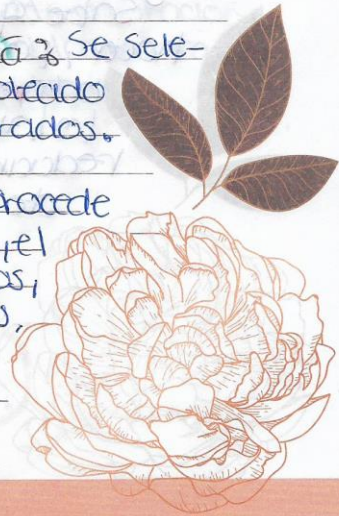 a: Se sele-
oleado
rados.
rocede
y el
os,
s,